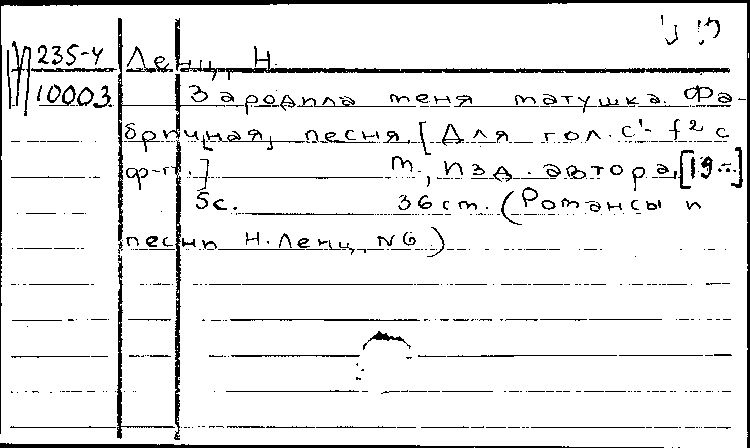 235-4 Ленц, Н.
10003 Зародила меня матушка. Фа-
бричная песня. [Для гол. c¹- f² с
ф-п.] М., Изд. автора, [19--]
5с. 36 см. (Романсы и
песни Н. Ленц, N6)